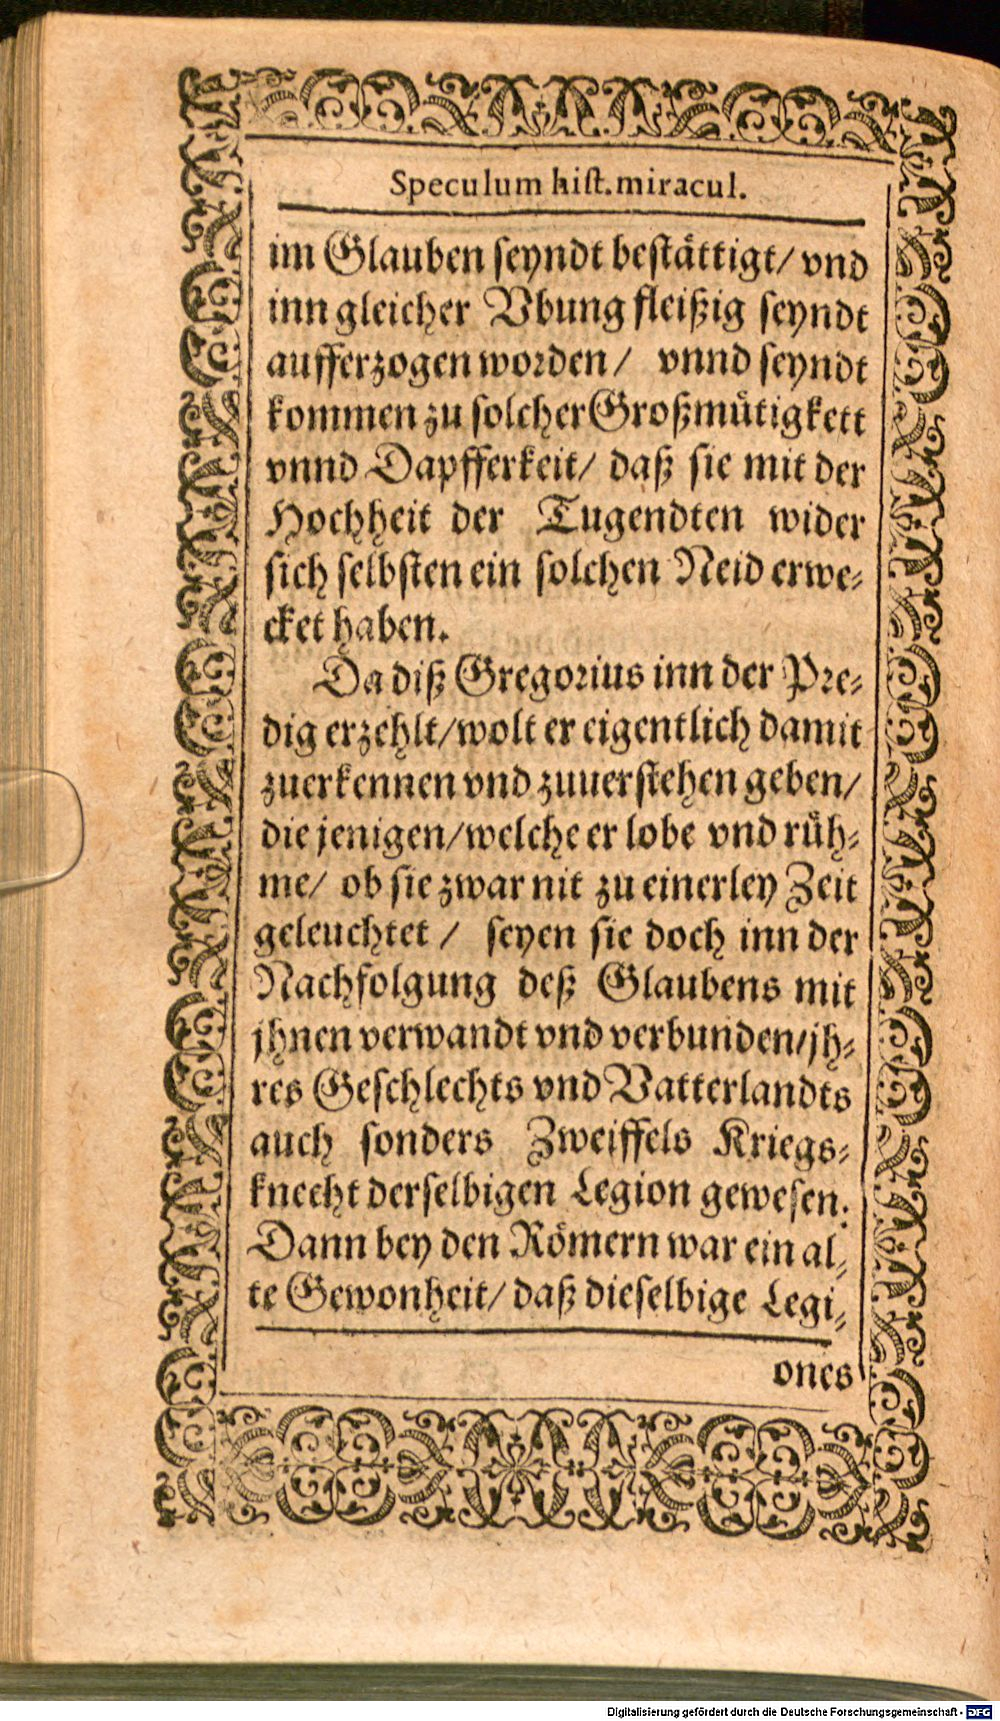 Speculum hiſt. miracul.
im Glauben ſeyndt beſtättigt/ vnd
inn gleicher Vbung fleißig ſeyndt
aufferzogen worden/ vnnd ſeyndt
kommen zu ſolcher Großmütigkett
vnnd Dapfferkeit/ daß ſie mit der
Hochheit der Tugendten wider
ſich ſelbſten ein ſolchen Neid erwe⸗
cket haben.
Da diß Gregorius inn der Pre⸗
dig erzehlt/ wolt er eigentlich damit
zuerkennen vnd zuuerſtehen geben/
die jenigen/ welche er lobe vnd rüh⸗
me/ ob ſie zwar nit zu einerley Zeit
geleuchtet/ ſeyen ſie doch inn der
Nachfolgung deß Glaubens mit
jhnen verwandt vnd verbunden/ jh⸗
res Geſchlechts vnd Vatterlandts
auch ſonders Zweiffels Kriegs⸗
knecht derſelbigen Legion geweſen.
Dann bey den Römern war ein al⸗
te Gewonheit/ daß dieſelbige Legi⸗
ones
Digitalisierung gefördert durch die Deutsche Forschungsgemeinschaft - DFG